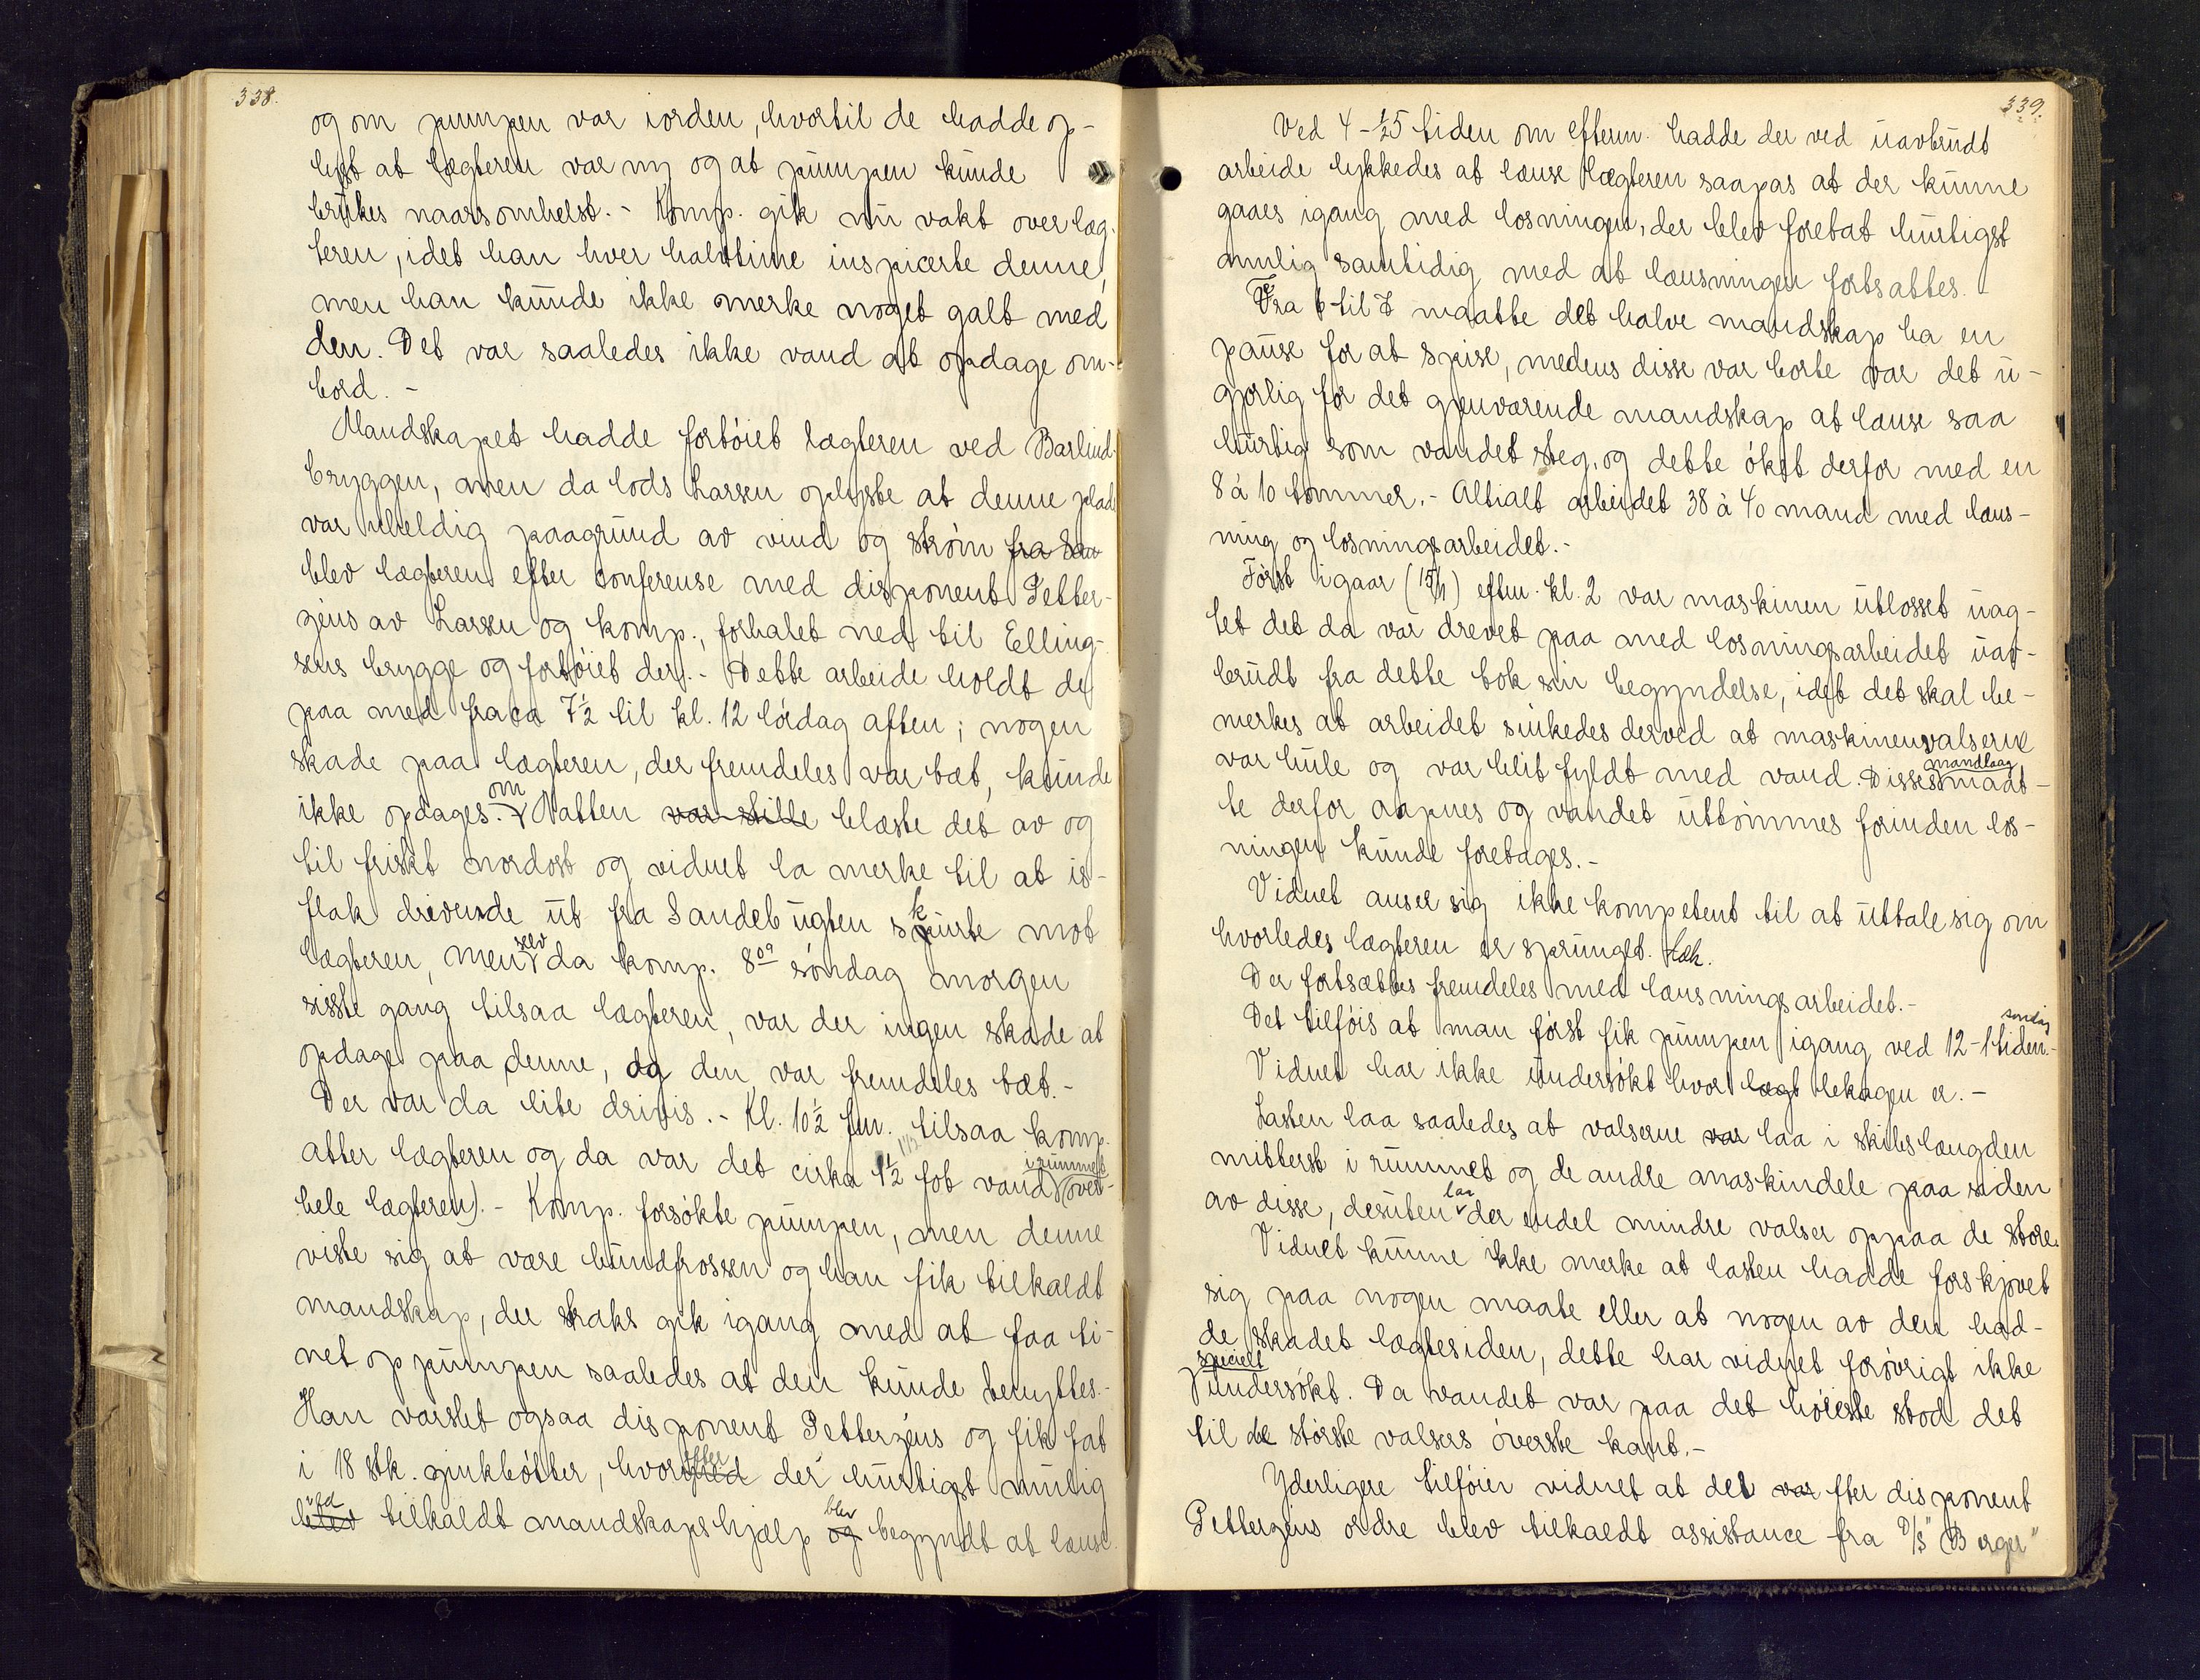 338.
og om pumpen var iorden, hvortil de hadde op-
lyst at lægteren var ny og at pumpen kunde
brukes naarsomhelst. - Komp. gik nu vakt over læg-
teren, idet han hver halvtime inspicerte denne,
men han kunde ikke merke noget galt med
den. Det var saaledes ikke vand at opdage om-
bord. -
Mandskapet hadde fortöiet lægteren ved Barlind-
bryggen, men da lods Larsen oplyste at denne plads
var uheldig paagrund av vind og ström fra San
blev lægteren efter conferense med disponent Petter-
zéns av Larsen og komp., forhalet ned til Elling-
sens brygge og fortöiet der. - Dette arbeide holdt de
paa med fra ca 7½ til kl. 12 lördag aften; nogen
skade paa lægteren, der fremdeles var tæt, kunde
ikke opdages. om Natten var stille blæste det av og
til friskt nordost og vidnet la merke til at is-
flak drivende ut fra Sandebugten skurte mot
lægteren, men selv da komp. 8⁰⁰ söndag morgen
sisste gang tilsaa lægteren, var der ingen skade at
opdage paa denne, og den var fremdeles tæt. -
Der var da lite drivis. - Kl. 10½ fm. tilsaa komp.
atter lægteren og da var det cirka 1½ fot vand i rummet (over-
hele lægteren). - Komp. forsökte pumpen, men denne
viste sig at være bundfrossen og han fik tilkaldt
mandskap, der straks gik igang med at faa ti-
net op pumpen saaledes at den kunde benyttes. -
Han varslet ogsaa disponent Petterzéns og fik fat
i 18 stk. zinkbötter, hvorefter med der hurtigst mulig
ved blev tilkaldt mandskapshjælp blev og begyndt at lænse.
339.
Ved 4 - ½5 tiden om efterm. hadde der ved uavbrudt
arbeide lykkedes at lænse lægteren saapas at der kunne
gaaes igang med losningen, der blev foretat hurtigst
mulig samtidig med at lænsningen fortsattes.
Fra 6 til 7 maatte det halve mandskap ha en
pause for at spise, medens disse var borte var det u-
gjorlig for det gjenværende mandskap at lænse saa
hurtig som vandet steg, og dette ökte derfor med en
8 à 10 tommer. - Altialt arbeidet 38 à 40 mand med læns-
ning og losningsarbeidet. -
Först igaar (15/1) eftm. kl. 2 var maskinen utlosset uag-
tet det da var drevet paa med losningsarbeidet uav-
brudt fra dette tok sin begyndelse, idet det skal be-
merkes at arbeidet sinkedes derved at maskinenvalserne
var hule og var blit fyldt med vand. Disses mandlaag maat-
te derfor aapnes og vandet uttömmes forinden los-
ningen kunde foretages. -
Vidnet anser sig ikke kompetent til at uttale sig om
hvorledes lægteren er sprunget læk.
Der fortsættes fremdeles med lænsningsarbeidet. -
Det tilföis at man först fik pumpen igang ved 12 - 1 tiden söndag. -
Vidnet har ikke undersökt hvor lægt lekagen er. -
Lasten laa saaledes at valserne var laa i skibslængden
mitterst i rummet og de andre maskindele paa siden
av disse, desuten laa der endel mindre valser oppaa de store.
Vidnet kunne ikke merke at lasten hadde forskjøvet
sig paa nogen maate eller at nogen av den had-
de skadet lægtesiden, dette har vidnet forövrigt ikke
specielt undersökt. Da vandet var paa det höieste stod det
til de störste valsers överste kant. -
Yderligere tilföier vidnet at det var efter disponent
Petterzéns ordre blev tilkaldt assistance fra D/S "Berger"